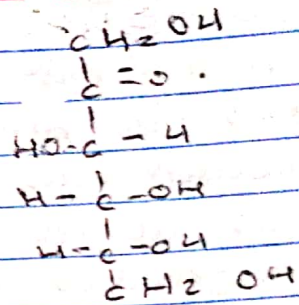 CH2OH
|
C=O.
|
HO-C-H
|
H-C-OH
|
H-C-OH
|
CH2OH